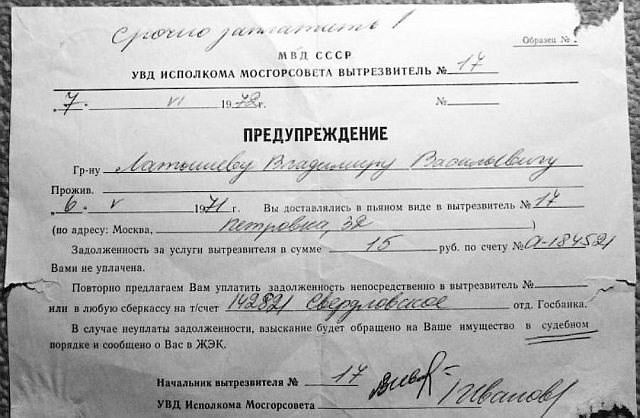 Срочно заплатить!
Образец №
МВД СССР
УВД ИСПОЛКОМА МОСГОРСОВЕТА ВЫТРЕЗВИТЕЛЬ № 17
7. VI 1972 г. №
ПРЕДУПРЕЖДЕНИЕ
Гр-ну Латышеву Владимиру Васильевичу
Прожив.
6. V 1971 г. Вы доставлялись в пьяном виде в вытрезвитель № 17
(по адресу: Москва, Петровка, 32 )
Задолженность за услуги вытрезвителя в сумме 15 руб. по счету № а-184521
Вами не уплачена.
Повторно предлагаем Вам уплатить задолженность непосредственно в вытрезвитель №
или в любую сберкассу на т/счет 142821 Свердловское отд. Госбанка.
В случае неуплаты задолженности, взыскание будет обращено на Ваше имущество в судебном
порядке и сообщено о Вас в ЖЭК.
Начальник вытрезвителя № 17
УВД Исполкома Мосгорсовета Иванов